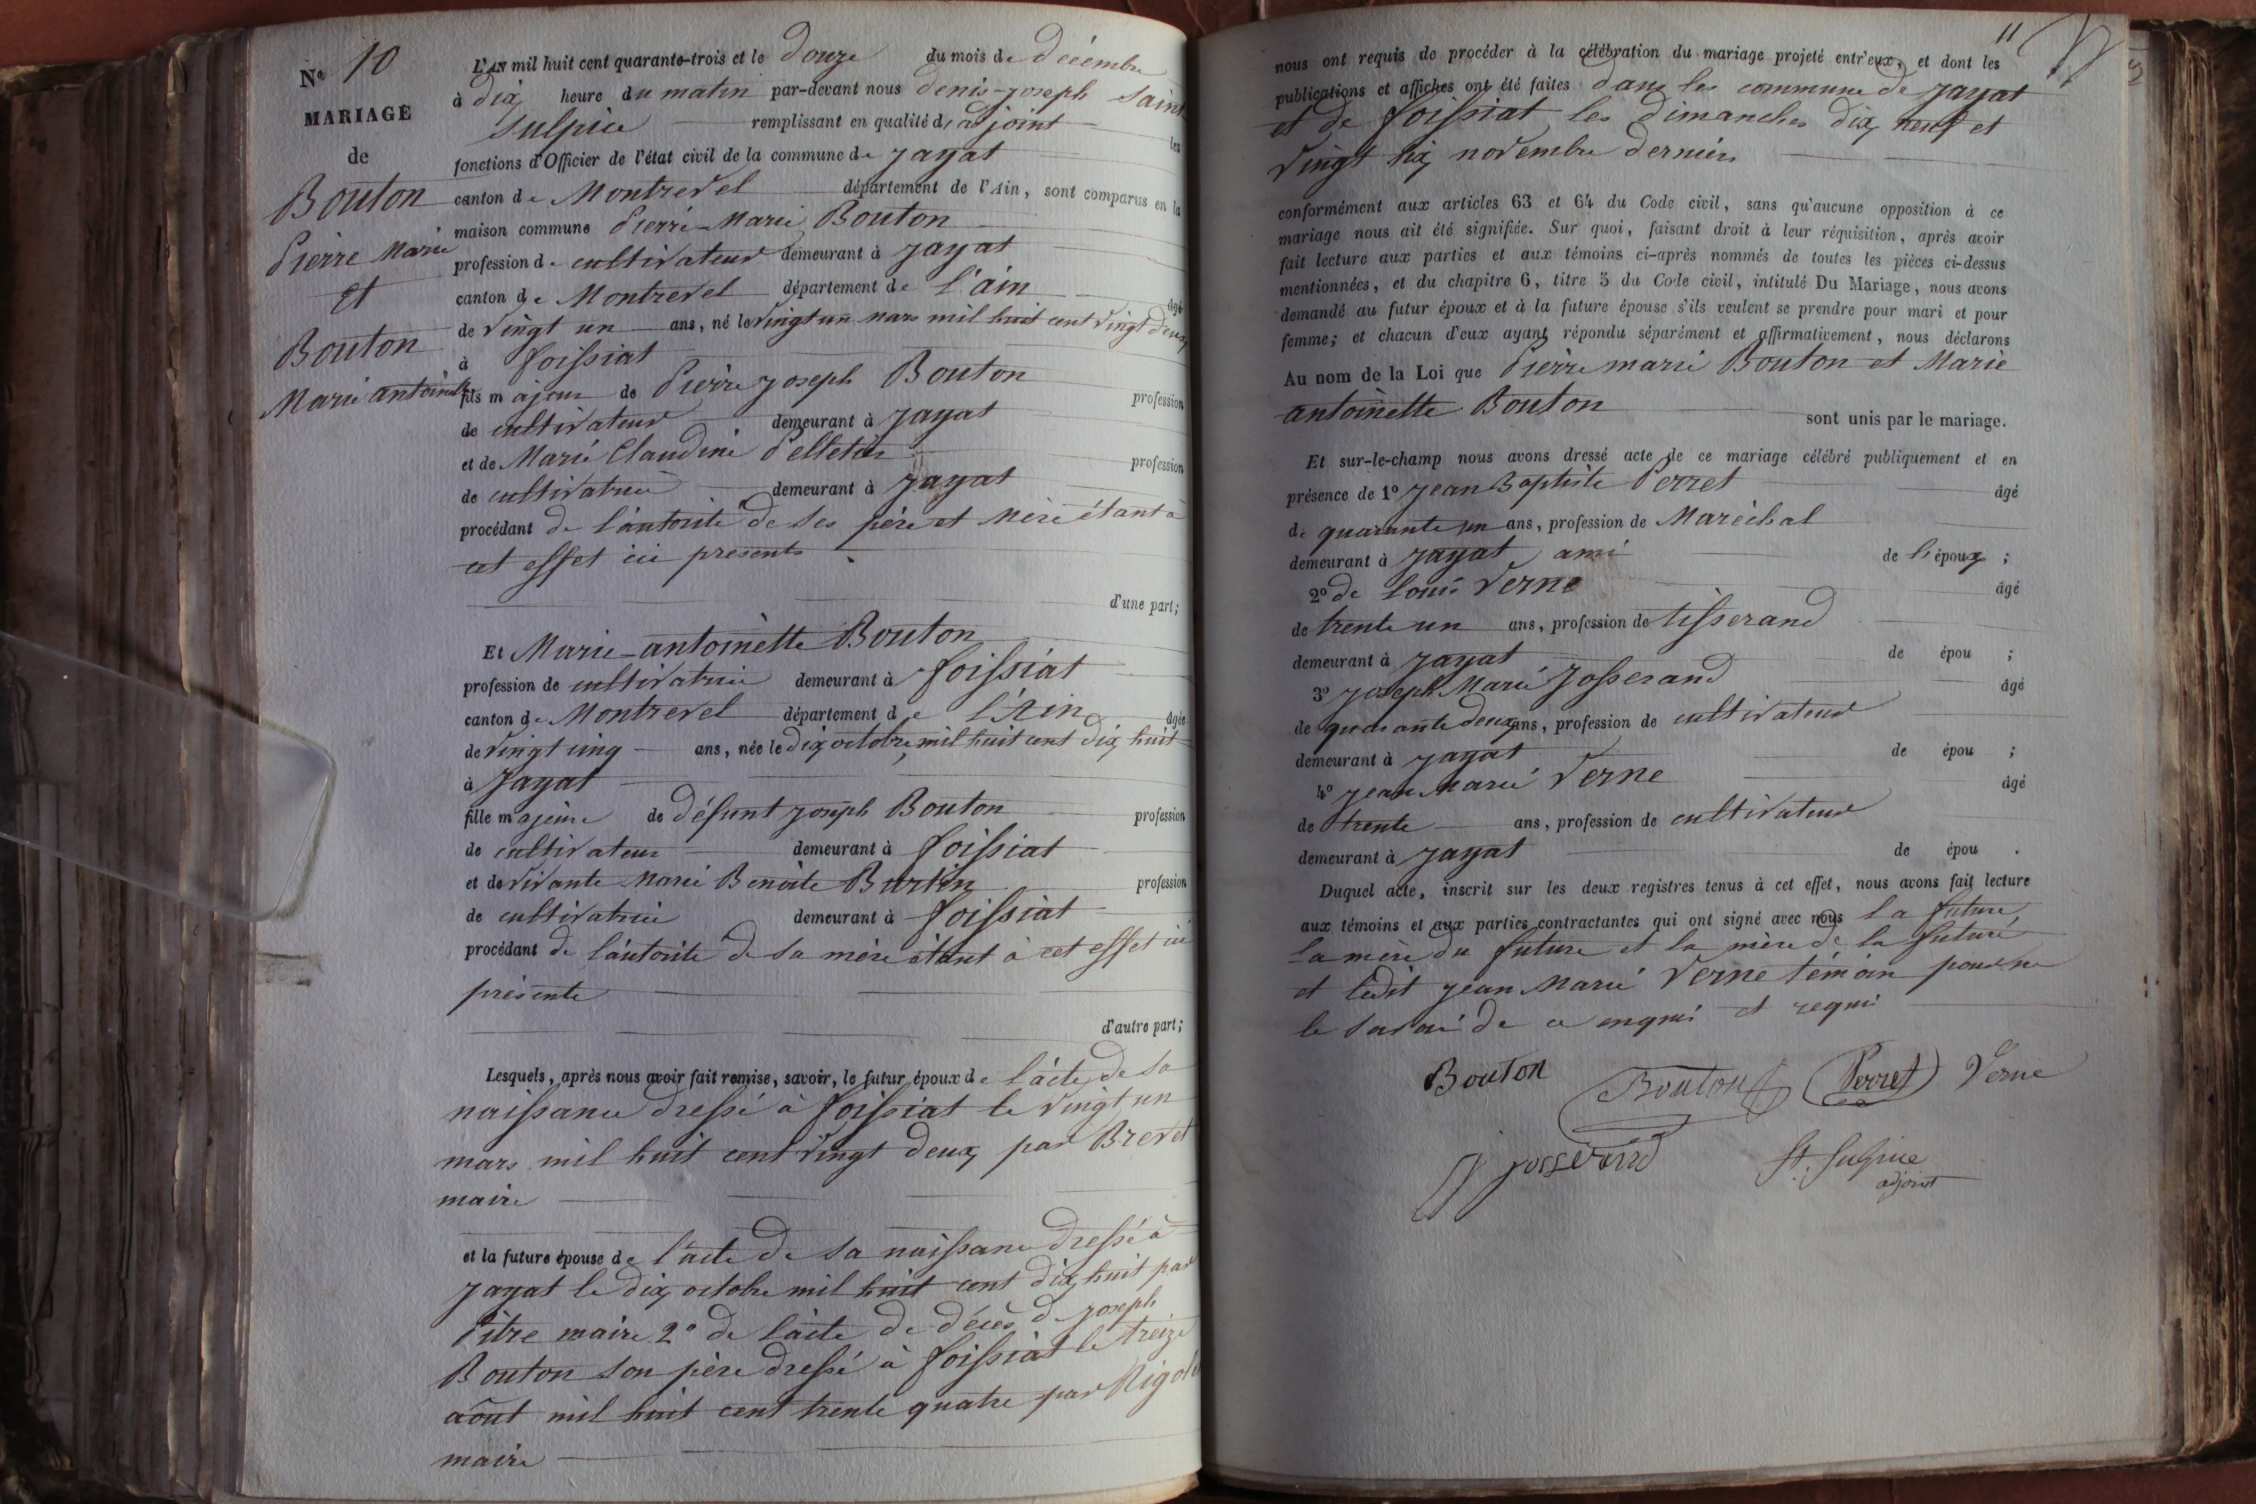 N° 10
MARIAGE
de
Bouton
Pierre Marie
et
Bouton
Marie antoinette
L'AN mil huit cent quarante-trois et le douze du mois de décembre
à dix heure du matin par-devant nous denis-joseph Saint
Sulpice remplissant en qualité d'adjoint les
fonctions d'Officier de l'état civil de la commune de jayat
canton de Montrevel département de l'Ain, sont comparus en la
maison commune Pierre-Marie Bouton
profession de cultivateur demeurant à jayat
canton de Montrevel département de l'ain âgé
de vingt un ans, né le vingt un mars mil huit cent vingt deux
à foissiat
fils majeur de Pierre joseph Bouton profession
de cultivateur demeurant à jayat
et de Marie Claudine Pelletier profession
de cultivatrice demeurant à jayat
procédant de l'autorité de ses père et mère étant à
cet effet ici presents
d'une part;
Et Marie-antoinette Bouton
profession de cultivatrice demeurant à foissiat
canton de Montrevel département de l'Ain âgée
de vingt cinq ans, née le dix octobre mil huit cent dix huit
à jayat
fille majeure de défunt joseph Bouton profession
de cultivateur demeurant à foissiat
et de vivante Marie Benoite Burtin profession
de cultivatrice demeurant à foissiat
procédant de l'autorité de sa mère étant à cet effet ici
présente
d'autre part;
Lesquels, après nous avoir fait remise, savoir, le futur époux de l'acte de sa
naissance dressé à foissiat le vingt un
mars mil huit cent vingt deux par Brevet
maire
et la future épouse de l'acte de sa naissance dressé à
jayat le dix octobre mil huit cent dix huit par
Pitre maire 2° de l'acte de décès de joseph
Bouton son père dressé à foissiat le treize
août mil huit cent trente quatre par
maire
11
nous ont requis de procéder à la célébration du mariage projeté entr'eux, et dont les
publications et affiches ont été faites dans les commune de jayat
et de foissiat les dimanches dix neuf et
vingt six novembre derniers
conformément aux articles 63 et 64 du Code civil, sans qu'aucune opposition à ce
mariage nous ait été signifiée. Sur quoi, faisant droit à leur réquisition, après avoir
fait lecture aux parties et aux témoins ci-après nommés de toutes les pièces ci-dessus
mentionnées, et du chapitre 6, titre 5 du Code civil, intitulé Du Mariage, nous avons
demandé au futur époux et à la future épouse s'ils veulent se prendre pour mari et pour
femme; et chacun d'eux ayant répondu séparément et affirmativement, nous déclarons
Au nom de la Loi que Pierre marie Bouton et Marie
antoinette Bouton sont unis par le mariage.
Et sur-le-champ nous avons dressé acte de ce mariage célébré publiquement et en
présence de 1° jean Baptiste Perret âgé
de quarante un ans, profession de Maréchal
demeurant à jayat ami de l'époux ;
2° de Louis Verne âgé
de trente un ans, profession de tisserand
demeurant à jayat de épou ;
3° joseph Marie Josserand âgé
de quarante deux ans, profession de cultivateur
demeurant à jayat de épou ;
4° jean Marie Verne âgé
de trente ans, profession de cultivateur
demeurant à jayat de épou .
Duquel acte, inscrit sur les deux registres tenus à cet effet, nous avons fait lecture
aux témoins et aux parties contractantes qui ont signé avec nous la future,
la mère du future et la mère de la future
et ledit jean Marie Verne témoin pour ne
le savoir de ce enquis et requis
Bouton Bouton Perret Verne
josserand St. Sulpice
adjoint